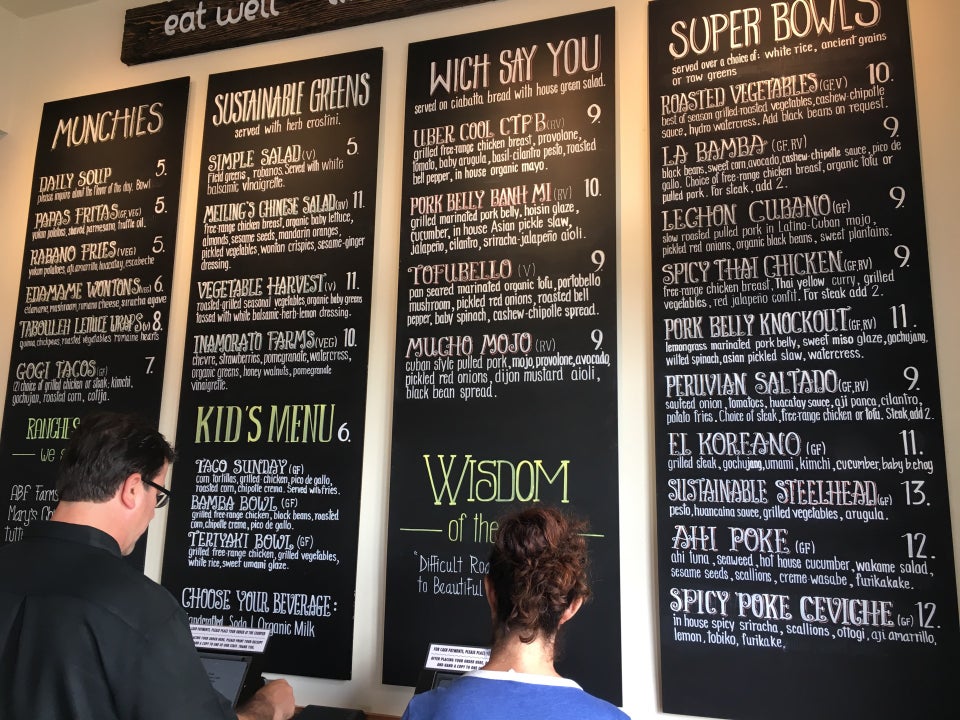 eat well
MUNCHIES
DAILY SOUP 5.
please inquire about the flavor of the day. Bowl
PAPAS FRITAS (GF, VEG) 5.
yukon potatoes, shaved parmesan, truffle oil.
RABANO FRIES (VEG) 5.
yukon potatoes, aji amarillo, huacatay, escabeche
EDAMAME WONTONS (VEG) 6.
edamame, mushroom, romano cheese, sriracha agave
TABOULEH LETTUCE WRAPS (V) 8.
quinoa, chickpeas, roasted vegetables, romaine hearts
GOGI TACOS (GF) 7.
(2) choice of grilled chicken or steak, kimchi,
gochujan, roasted corn, cotija.
RANCHES
we s
ABF Farms
Mary's Ch
Tutt
SUSTAINABLE GREENS
served with herb crostini.
SIMPLE SALAD (V) 5.
Field greens, rabanos. Served with white
balsamic vinaigrette.
MEILING'S CHINESE SALAD (RV) 11.
free-range chicken breast, organic baby lettuce,
almonds, sesame seeds, mandarin oranges,
pickled vegetables, wonton crispies, sesame-ginger
dressing.
VEGETABLE HARVEST (V) 11.
roasted-grilled seasonal vegetables, organic baby greens
tossed with white balsamic-herb-lemon dressing.
INAMORATO FARMS (VEG) 10.
chevre, strawberries, pomegranate, watercress,
organic greens, honey walnuts, pomegranate
vinaigrette.
KID'S MENU 6.
TACO SUNDAY (GF)
corn tortillas, grilled chicken, pico de gallo,
roasted corn, chipotle crema. Served with fries.
BAMBA BOWL (GF)
grilled free-range chicken, black beans, roasted
corn, chipotle crema, pico de gallo.
TERIYAKI BOWL (GF)
grilled free-range chicken, grilled vegetables,
white rice, sweet umami glaze.
CHOOSE YOUR BEVERAGE:
Handcrafted Soda | Organic Milk
WICH SAY YOU
served on ciabatta bread with house green salad.
UBER COOL CTPB (RV) 9.
grilled free-range chicken breast, provolone,
tomato, baby arugula, basil-cilantro pesto, roasted
bell pepper, in house organic mayo.
PORK BELLY BANH MI (RV) 10.
grilled marinated pork belly, hoisin glaze,
cucumber, in house Asian pickle slaw,
jalapeño, cilantro, sriracha-jalapeño aioli.
TOFUBELLO (V) 9.
pan seared marinated organic tofu, portobello
mushroom, pickled red onions, roasted bell
pepper, baby spinach, cashew-chipotle spread.
MUCHO MOJO (RV) 9.
cuban style pulled pork, mojo, provolone, avocado,
pickled red onions, dijon mustard aioli,
black bean spread.
WISDOM
of the
"Difficult Roa
to Beautiful
SUPER BOWLS
served over a choice of: white rice, ancient grains
or raw greens
ROASTED VEGETABLES (GF,V) 10.
best of season grilled-roasted vegetables, cashew-chipotle
sauce, hydro watercress. Add black beans on request.
LA BAMBA (GF,RV) 9.
black beans, sweet corn, avocado, cashew-chipotle sauce, pico de
gallo. Choice of free-range chicken breast, organic tofu or
pulled pork. For steak, add 2.
LECHON CUBANO (GF) 9.
slow roasted pulled pork in Latino-Cuban mojo,
pickled red onions, organic black beans, sweet plantains.
SPICY THAI CHICKEN (GF,RV) 9.
free-range chicken breast, Thai yellow curry, grilled
vegetables, red jalapeño confit. For steak add 2.
PORK BELLY KNOCKOUT (GF,RV) 11.
lemongrass marinated pork belly, sweet miso glaze, gochujang,
wilted spinach, asian pickled slaw, watercress.
PERUVIAN SALTADO (GF,RV) 9.
sauteed onion, tomatoes, huacatay sauce, aji panca, cilantro,
potato fries. Choice of steak, free-range chicken or tofu. Steak, add 2.
EL KOREANO (GF) 11.
grilled steak, gochujang, umami, kimchi, cucumber, baby bchoy
SUSTAINABLE STEELHEAD (GF) 13.
pesto, huancaina sauce, grilled vegetables, arugula.
AHI POKE (GF) 12.
ahi tuna, seaweed, hot house cucumber, wakame salad,
sesame seeds, scallions, creme wasabe, furikakake.
SPICY POKE CEVICHE (GF) 12.
in house spicy sriracha, scallions, ottogi, aji amarrillo,
lemon, tobiko, furikake.
FOR CASH PAYMENTS, PLEASE PLACE